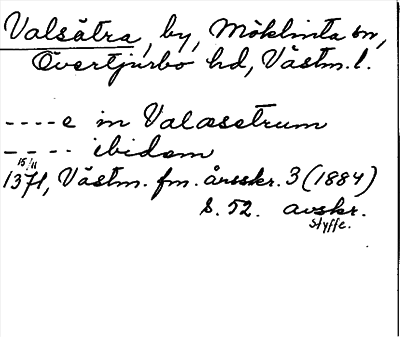 Valsätra, by, Möklinta sn,
Övertjurbo hd, Västm. l.
----e in Valasetrum
---- ibidem
15/11
1371, Västm. fm. årsskr. 3 (1884)
S. 52. avskr.
Styffe.